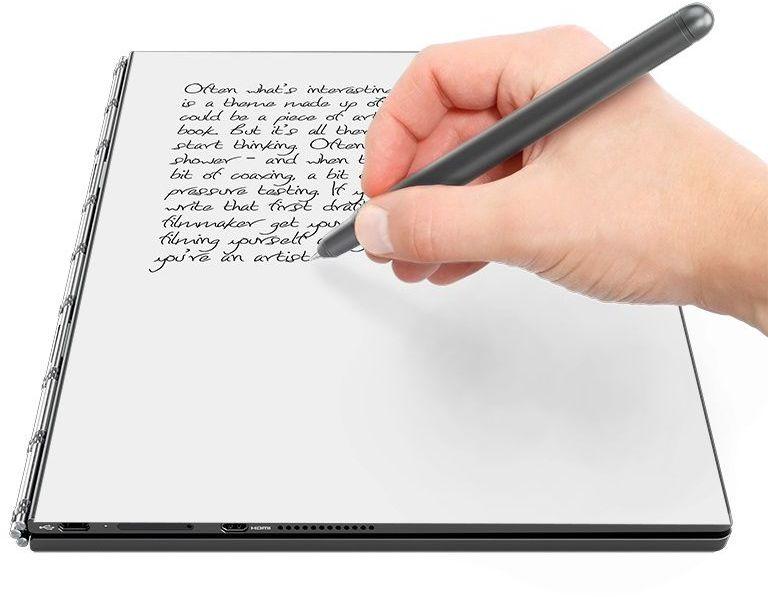 Often what's interesting
is a theme made up of
could be a piece of art
book. But it's all there
start thinking. Often
shower - and when
bit of coaxing, a bit
pressure testing. If
write that first draft
filmmaker get your
filming yourself
you're an artist
HDMI